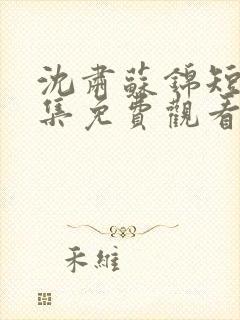 沈肅蘇錦短
集免費觀看
禾維